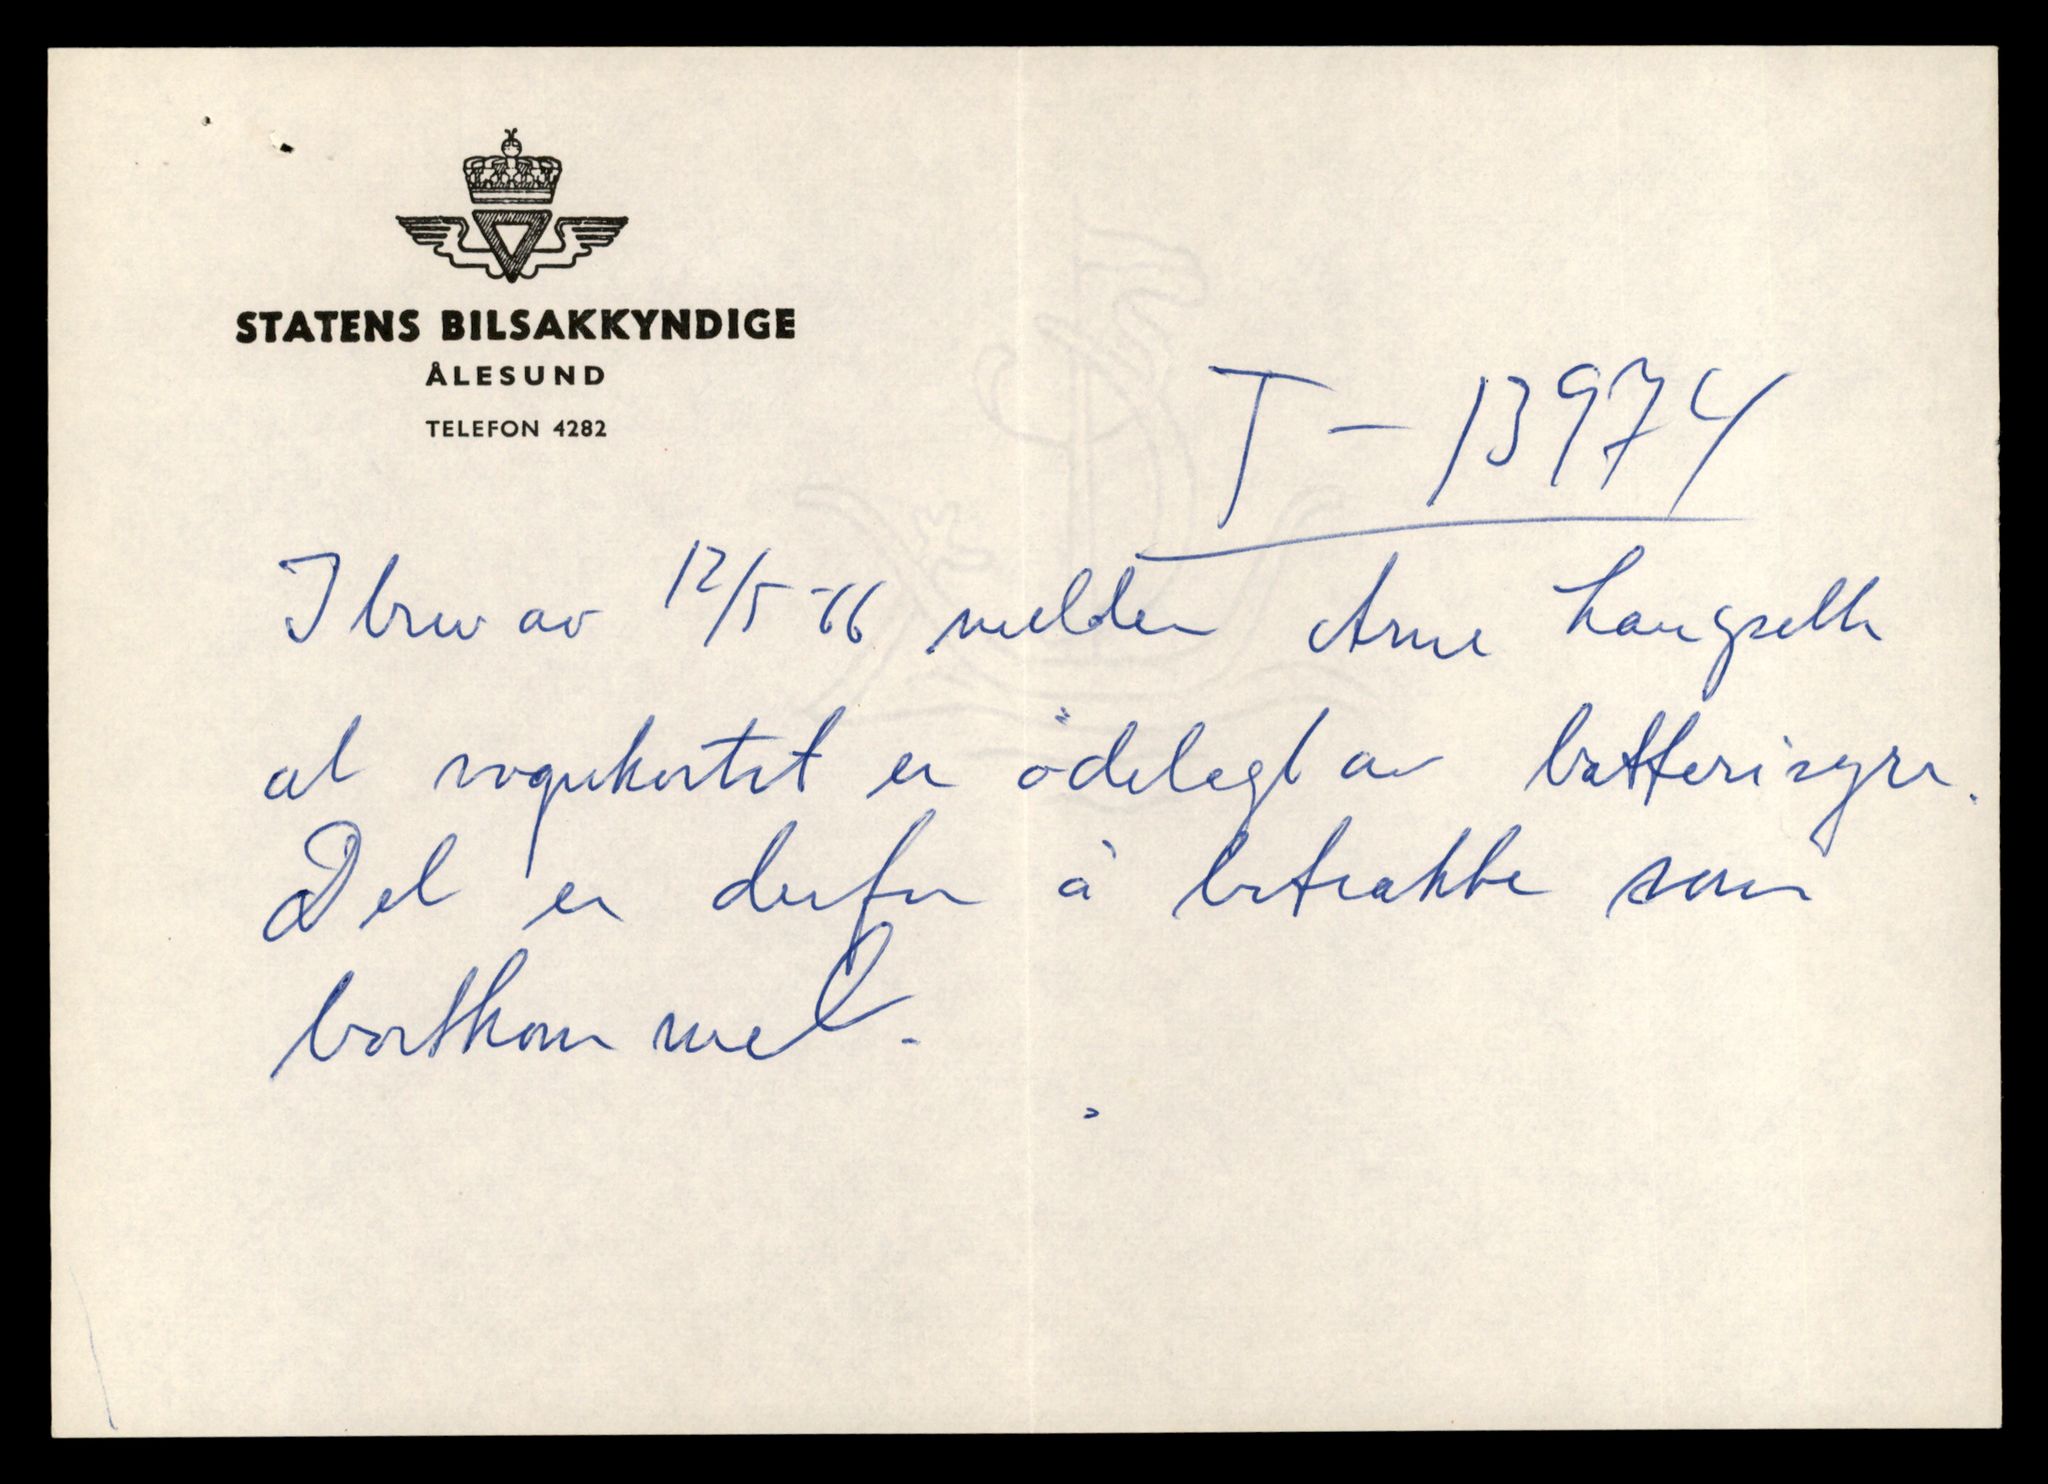 STATENS BILSAKKYNDIGE
ÅLESUND
TELEFON 4282
T - 13974
I brev av 12/5-66 melder Arne Langseth
at vognkortet er ödelagt av batterisyre.
Det er derfor å betrakte som
bortkommet.